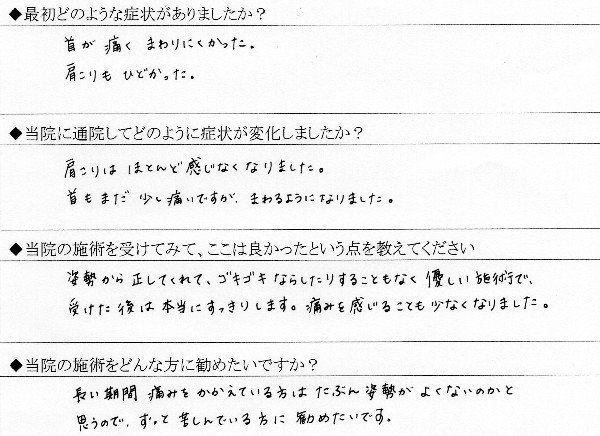 ◆最初どのような症状がありましたか?
首が 痛く まわりにくかった。
肩こりも ひどかった。
◆当院に通院してどのように症状が変化しましたか?
肩こりは ほとんど感じなくなりました。
首もまだ 少し痛いですが、まわるようになりました。
◆当院の施術を受けてみて、ここは良かったという点を教えてください
姿勢から 正してくれて、ゴキゴキ ならしたりすることもなく 優しい 施術で、
受けた後は 本当にすっきりします。痛みを感じることも 少なくなりました。
◆当院の施術をどんな方に勧めたいですか?
長い期間 痛みを かかえている方は たぶん 姿勢が よくないのかと
思うので、ずっと 苦しんでいる方に 勧めたいです。